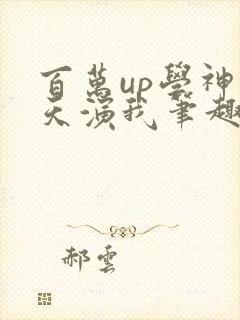 百萬up學神
天演我筆趣
郝雲